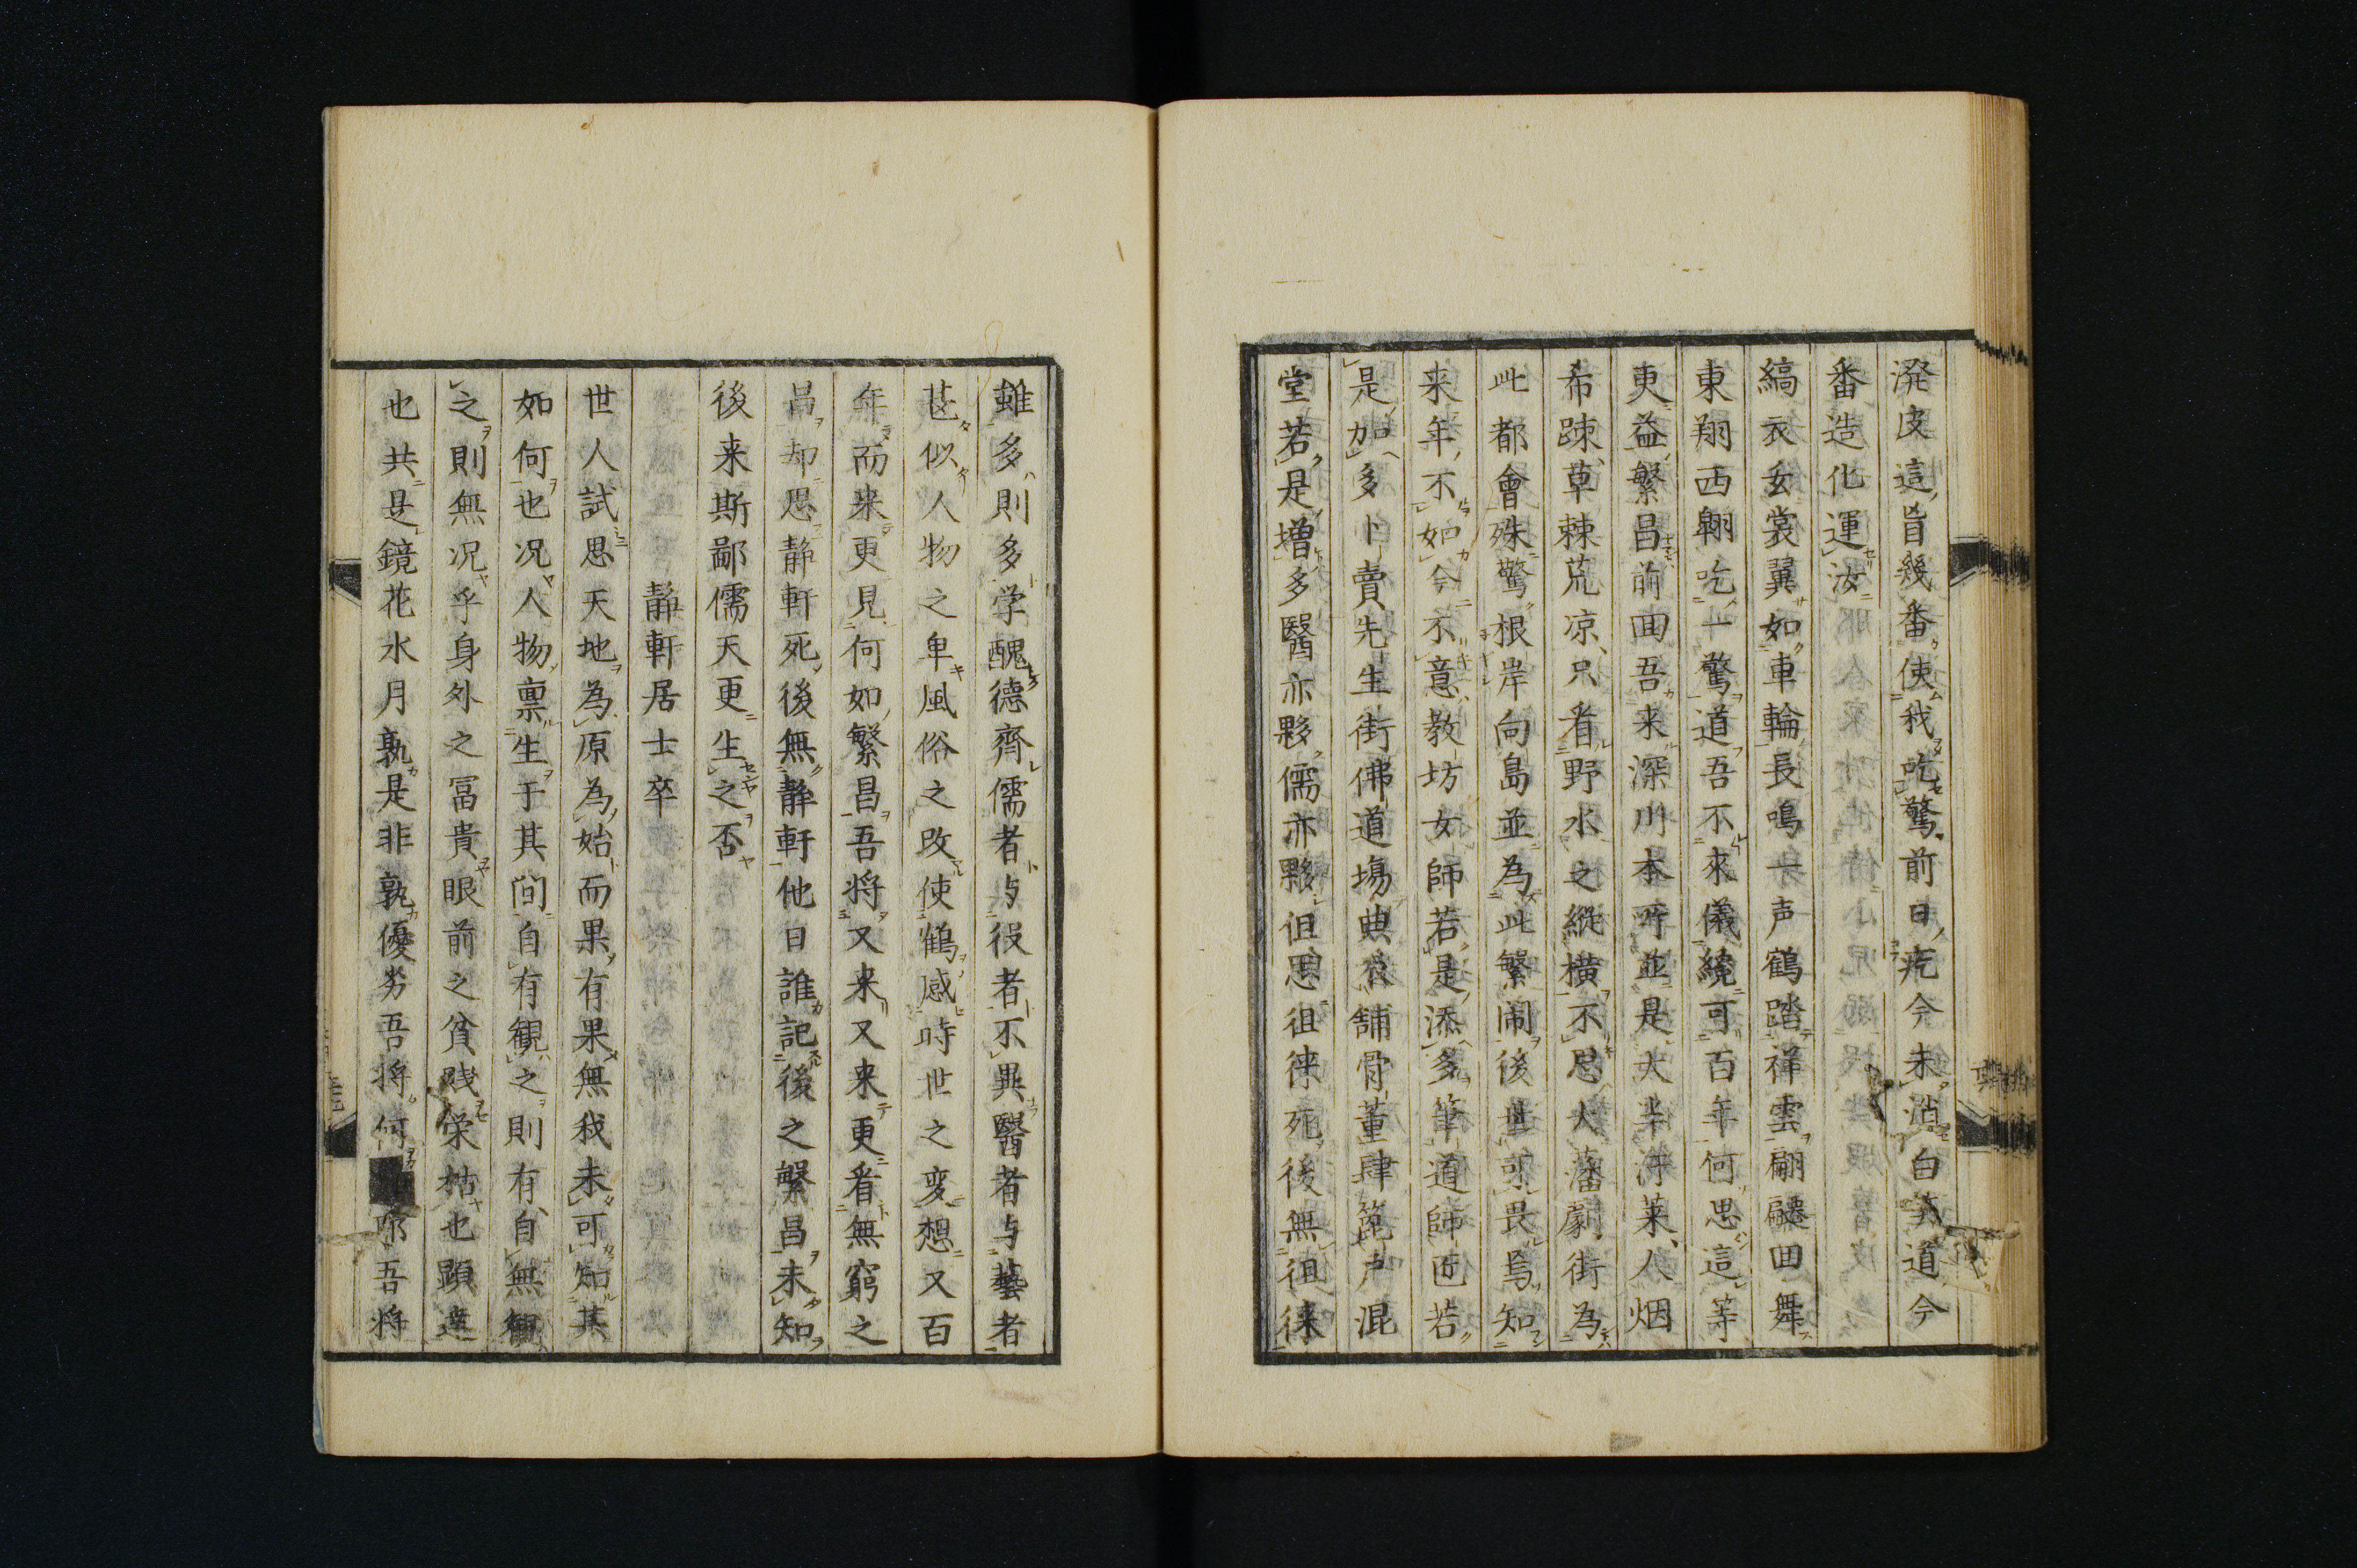 潑皮這、旨幾番使我吃驚前日疙今未消白笑道今
番造化運汝
縞衣玄裳翼如車輪長鳴一声鶴踏祥雲翩躚回舞
東翔西翺吃一驚道吾不來儀纔可百年何思這等
更益繁昌前回吾来深川本所並是大半汙莱、人烟
希疎、草棘荒凉、只看野水之縦横不思大藩劇街為
此都會殊驚根岸向島並為此繁閙後世可畏焉知
来年不如今不意教坊女師若是添多筆道師匠若
是加多卜賣先生街佛道場典衣舗骨董肆箆声混
堂若是増多醫亦夥儒亦夥但思徂徠死後無徂徠
雖多則多学醜德齊儒者与役者不異醫者与藝者
甚似人物之卑風俗之改使鶴感時世之変想又百
年而来更見何如繁昌吾将又来又来更看無窮之
昌却思静軒死後無静軒他日誰記後之繁昌未知
後来斯鄙儒天更生之否
静軒居士卒
世人試思天地為原為始而果有果無我未可知其
如何也况人物禀生于其間自有觀之則有、自無觀
之則無况乎身外之冨貴眼前之貧賎栄枯也顕達
也共是鏡花水月孰是非孰優劣吾将何 耶吾将